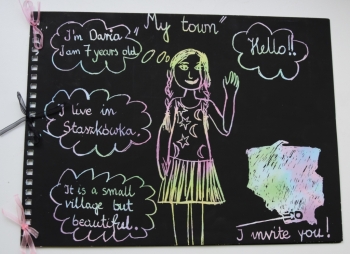 "My town"
I'm Daria
I am 7 years old
Hello!!
I live in
Staszkówka.
It is a small
village but
beautiful.
I invite you!